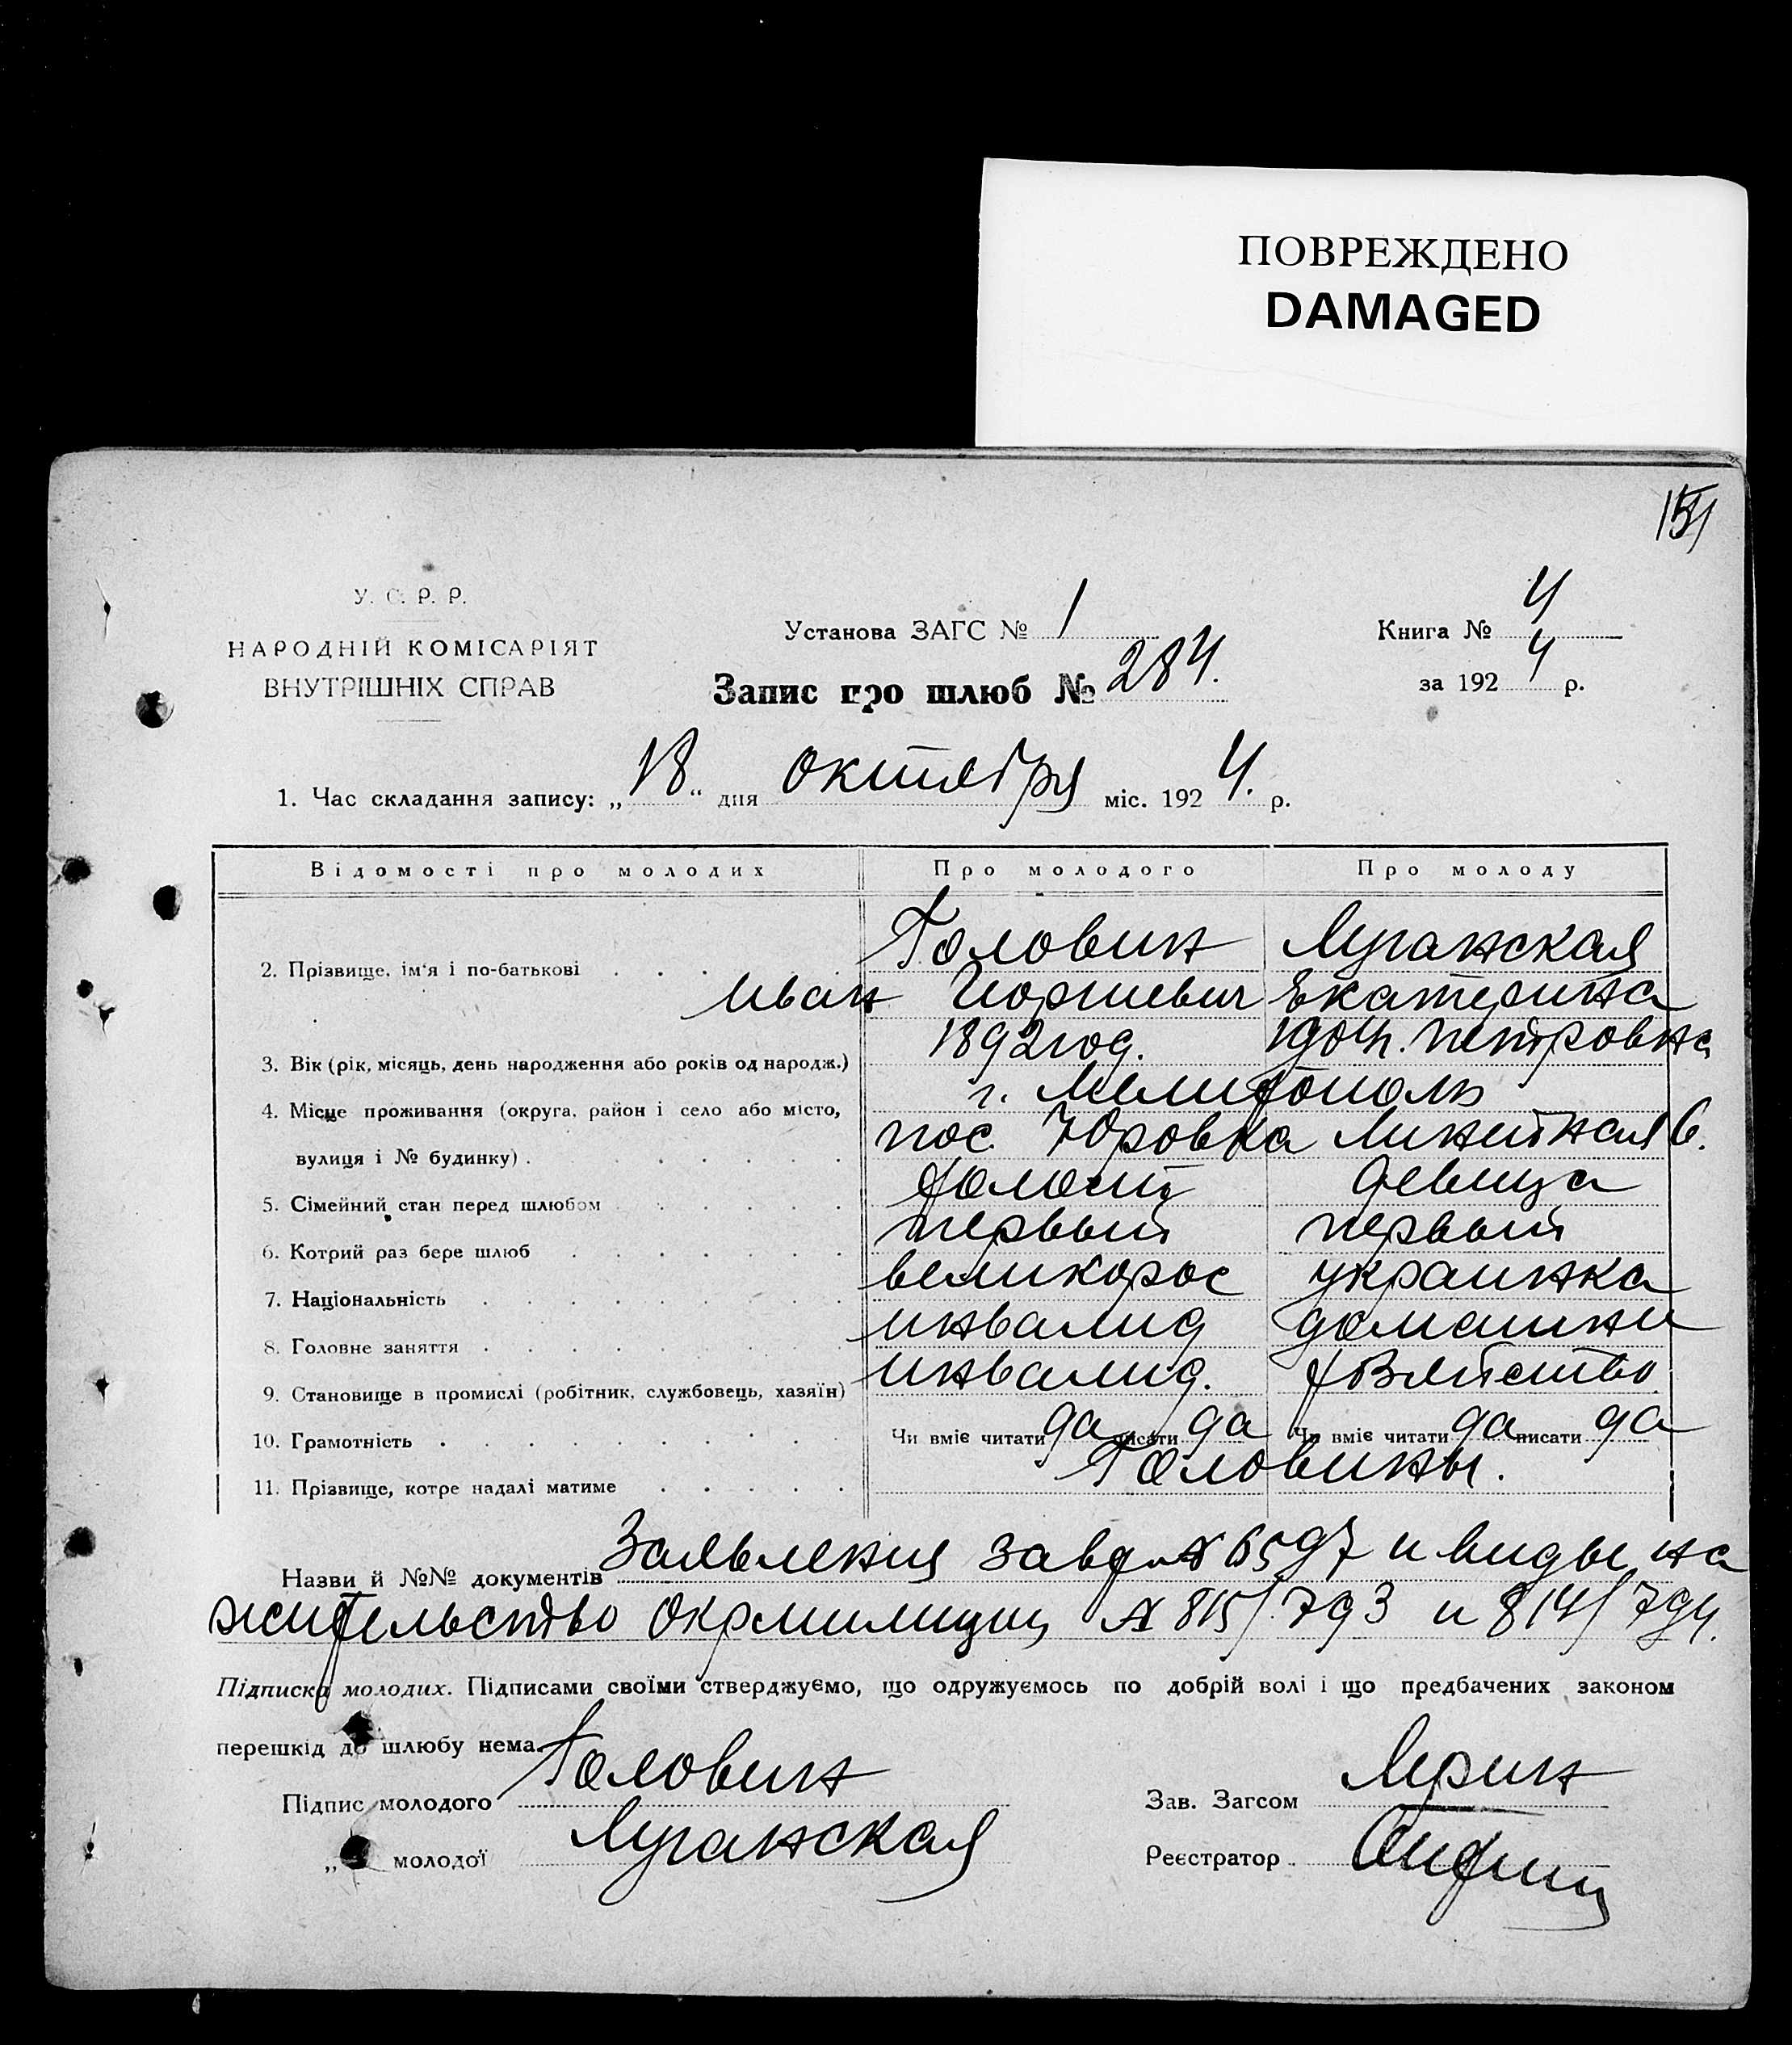 ПОВРЕЖДЕНО
DAMAGED
У. С. Р. Р.
НАРОДНІЙ КОМІСАРІЯТ
ВНУТРІШНІХ СПРАВ
Установа ЗАГС № 1
Книга № 4
за 1924 р.
Запис про шлюб № 284.
1. Час складання запису: „18“ дня октября міс. 1924. р.
Відомості про молодих Про молодого Про молоду
2. Прізвище, ім'я і по-батькові Головин Луганская
Иван Екатерина
3. Вік (рік, місяць, день народження або років од народж.) 1892 год. 1904 г. Петровна
4. Місце проживання (округа, район і село або місто, г. Мелитополь
вулиця і № будинку) пос. Юровка Линейная 6.
5. Сімейний стан перед шлюбом холост девица
6. Котрий раз бере шлюб первый первый
7. Національність великорос украинка
8. Головне заняття инвалид домашнее
9. Становище в промислі (робітник, службовець, хазяїн) инвалид. хозяйство
10. Грамотність Чи вміє читати да писати да Чи вміє читати да писати да
11. Прізвище, котре надалі матиме Головины.
Назви й №№ документів Заявления № 6597 и виды на
жительство Окрмилиции № 815/793 и 814/794.
Підписка молодих. Підписами своїми стверджуємо, що одружуємось по добрій волі і що предбачених законом
перешкід до шлюбу нема.
Підпис молодого Головин
„ молодої Луганская
Зав. Загсом
Реєстратор